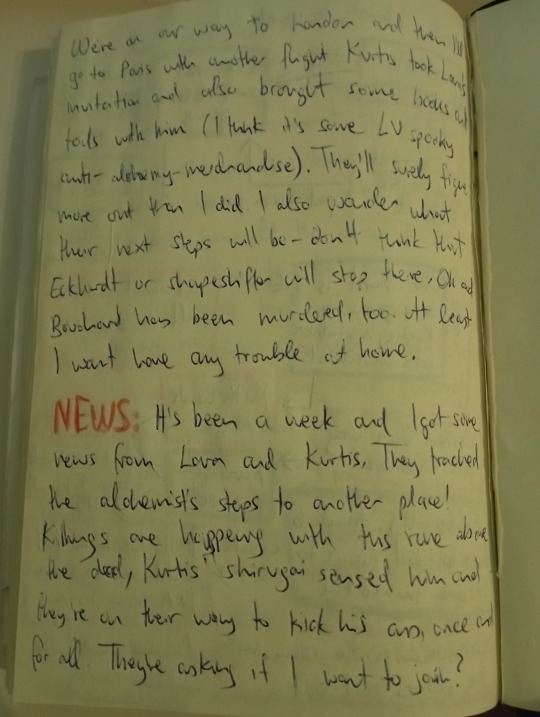 We're on our way to London and then I'll
go to Paris with another flight Kurtis took Lara's
invitation and also brought some books and
tools with him (I think it's some LV spooky
anti-alchemy-merchandise). They'll surely figure
more out than I did. I also wonder what
their next steps will be - don't think that
Eckhardt or shapeshifter will stop there. Oh and
Bouchard has been murdered, too. At least
I want have any trouble at home.
NEWS: It's been a week and I got some
news from Lara and Kurtis. They tracked
the alchemist's steps to another place!
Killings are happening with this
the dead, Kurtis' shirugai sensed him and
they're on their way to kick his ass, once and
for all. They're asking if I want to join?